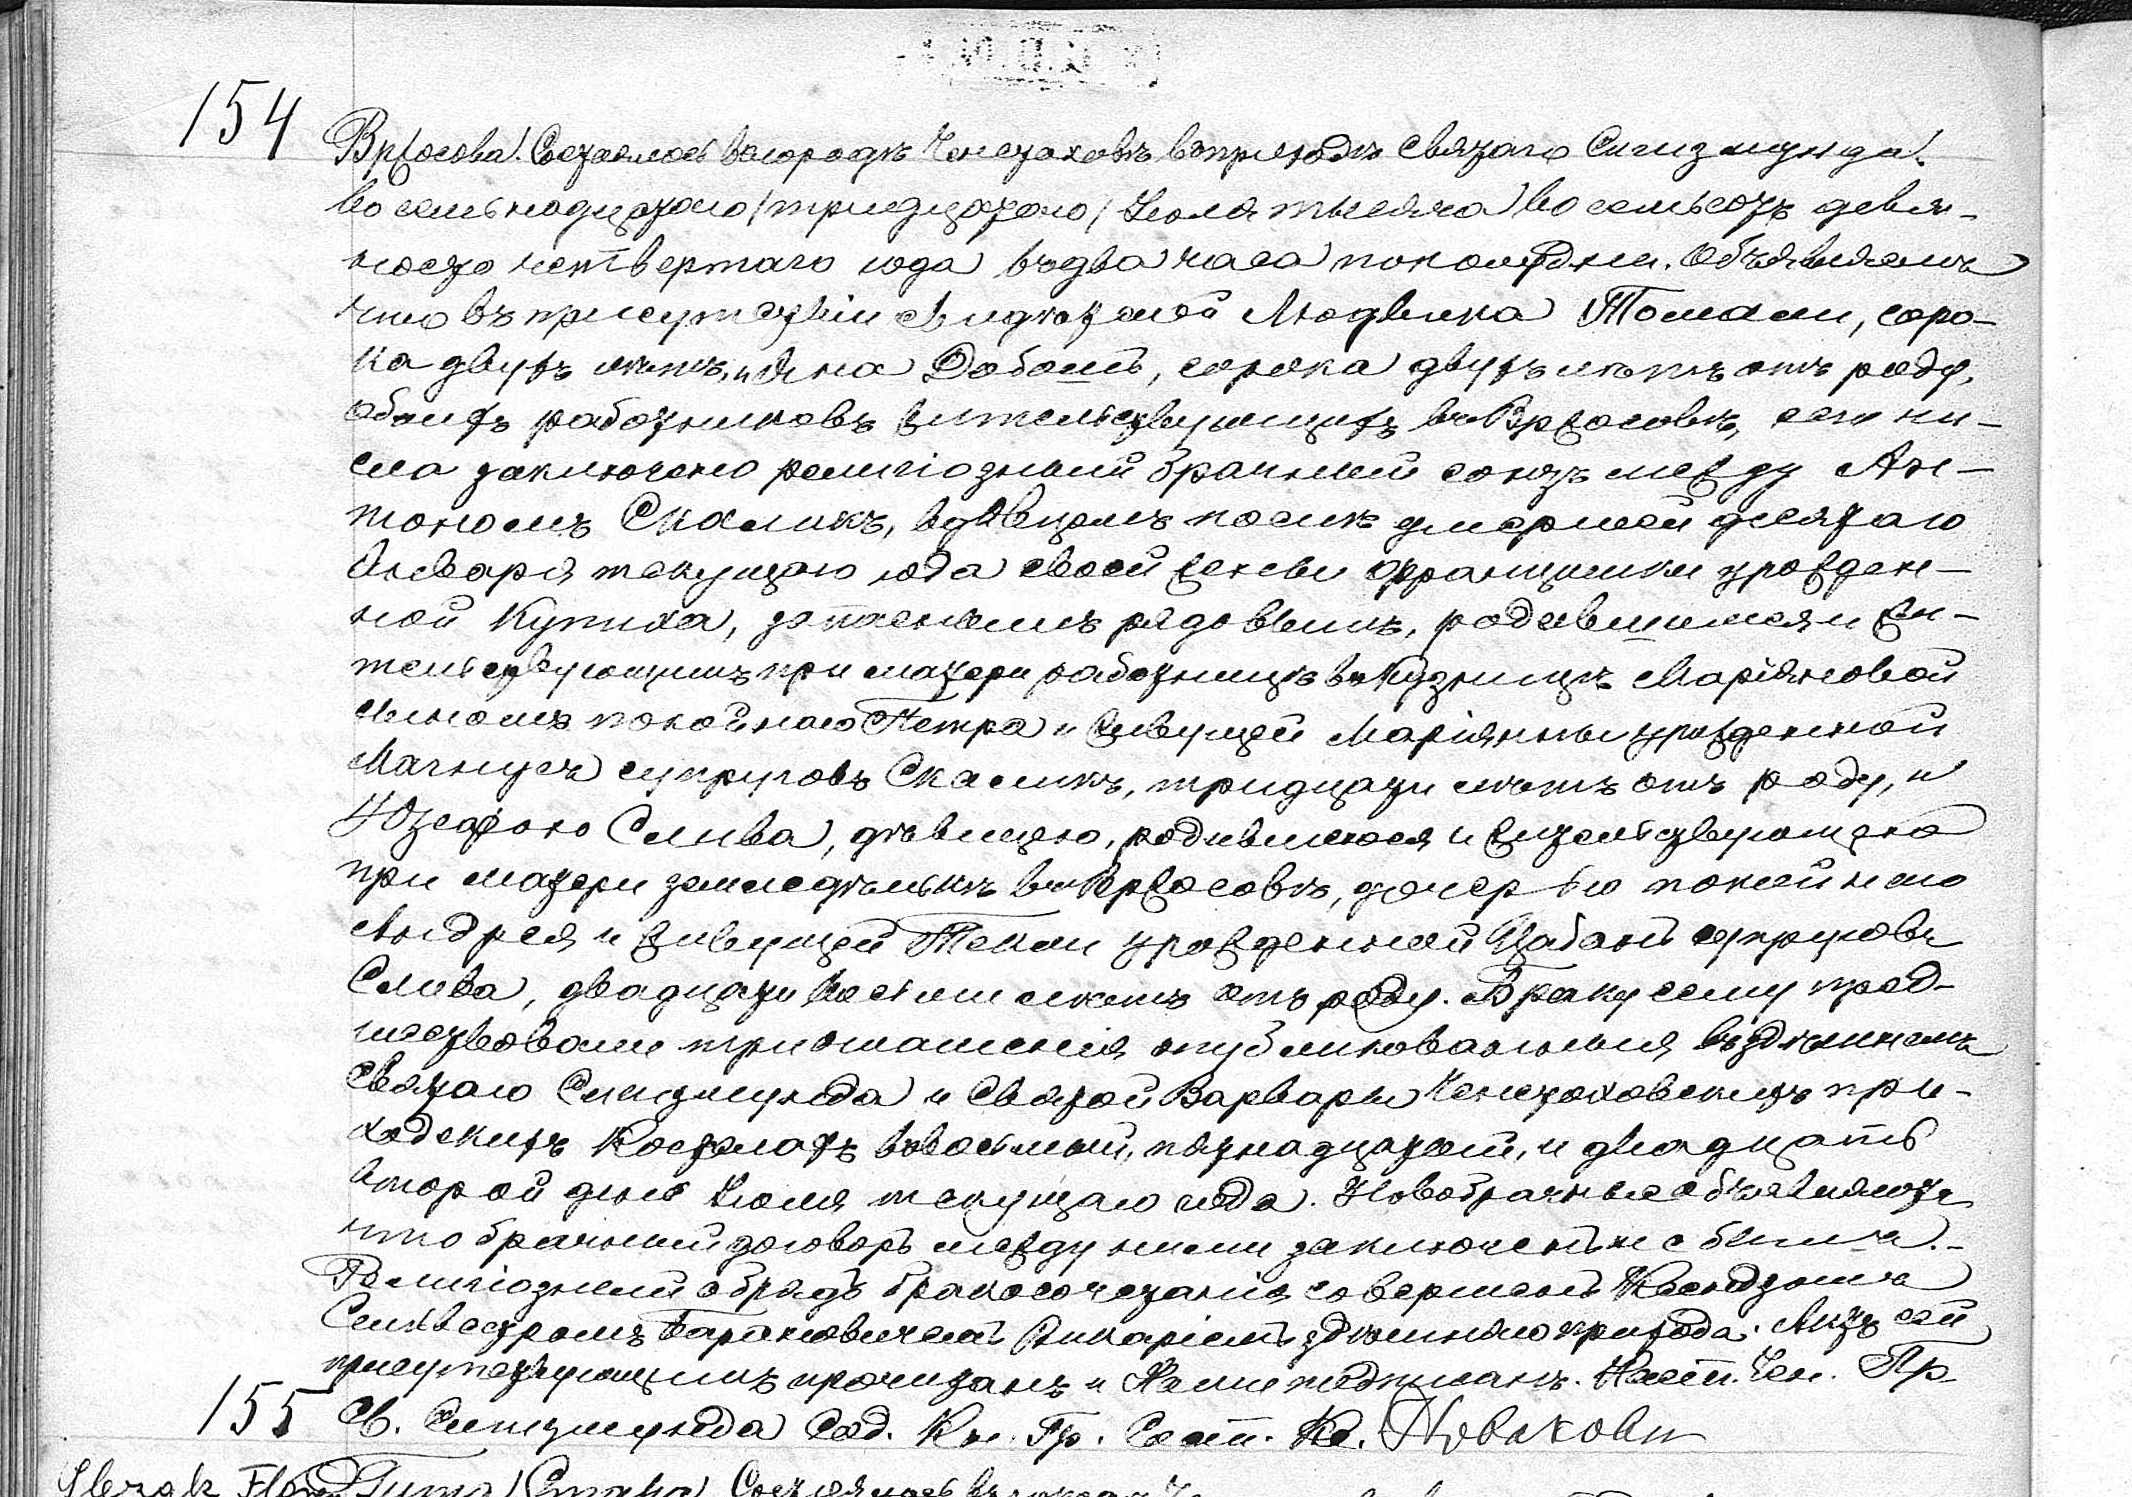 154
Вржосова. Состоялось въ городѣ Ченстоховѣ въ приходѣ Святаго Сигизмунда
восемьнадцатаго /тридцатаго/ Іюля тысяча восемьсотъ девя-
носто четвертаго года въ два часа пополудни. Объявляемъ
что въ присутствіи свидѣтелей Людвика Томали, соро-
ка двухъ лѣтъ, и Яна , сорока двухъ лѣтъ отъ роду,
обоихъ работниковъ жительствующихъ въ Вржосовѣ, сего чи-
сла заключено религіозный брачный союзъ между Ан-
тономъ Скаликъ, вдовцомъ послѣ умершей десятаго
Января текущаго года своей жены Францишки урожден-
ной Купиха, запаснымъ рядовымъ, родившимся и жи-
тельствующимъ при матери работницѣ въ Кузницѣ Маріановой
сыномъ покойнаго Петра и живущей Маріянны урожденной
супруговъ Скаликъ, тридцати лѣтъ отъ роду, и
Юзефою Слива, дѣвицею, родившеюся и жительствующею
при матери земледѣлькѣ въ Вржосовѣ, дочерью покойнаго
Андрея и живущей Текли урожденной Цабанъ супруговъ
Слива, двадцати восьми лѣтъ отъ роду. Браку сему пред-
шествовали три оглашенія опубликованныя въ здѣшнемъ
Святаго Сигизмунда и Святой Варвары Ченстоховскихъ при-
ходскихъ Костелахъ въ восьмый, пятнадцатый, и двадцать
второй день Іюля текущаго года. Новобрачные объявляютъ
что брачный договоръ между ними заключенъ не былъ.-
Религіозный обрядъ бракосочетанія совершенъ Ксендзомъ
Сильвестромъ Викаріемъ здѣшняго прихода. Актъ сей
присутствующимъ прочитанъ и Нами подписанъ. Наст. Чен. Пр.
Св. Сигизмунда Сод. Кн. Гр. Сост. Кс.
155